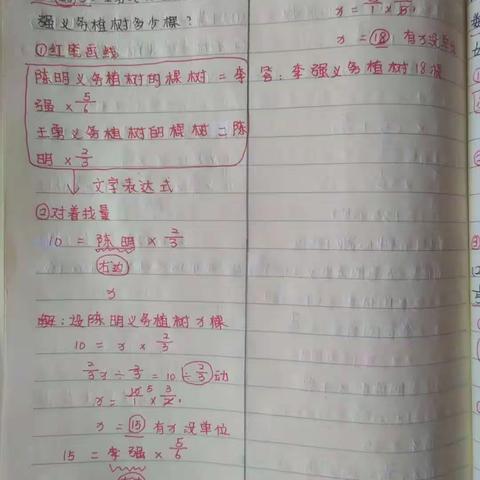 强义务植树多少棵?
①红笔画线
陈明义务植树的棵树 = 李
强 × 5/6
王勇义务植树的棵树 = 陈
明 × 2/3
文字表达式
②对着找量
10 = 陈明 × 2/3
右边
x
解:设陈明义务植树 x 棵
10 = x × 2/3
2/3 x ÷ 2/3 = 10 ÷ 2/3 动
x = 10/1 5 × 3/2 1
x = 15 有 x 没单位
15 = 李强 × 5/6
x = 18 有 x 没单
答: 李强义务植树 18 棵